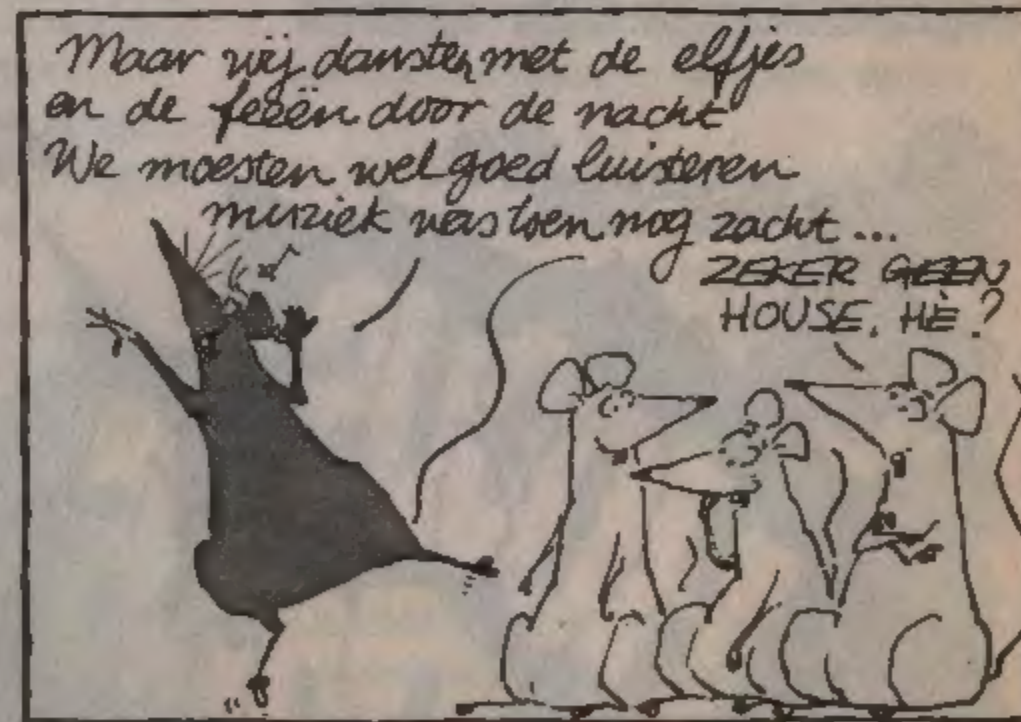 Maar wij dansten met de elfjes
en de feeën door de nacht
We moesten wel goed luisteren
muziek was toen nog zacht...
ZEKER GEEN
HOUSE, HÈ?